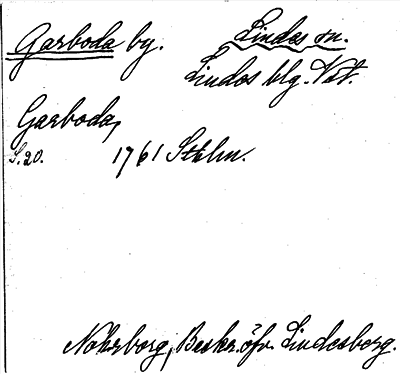 Garboda by. Lindes sn.
Lindes blg. Vst.
Garboda,
S. 20. 1761 Sthlm.
Nohrborg, Beskr. öfv. Lindesberg.